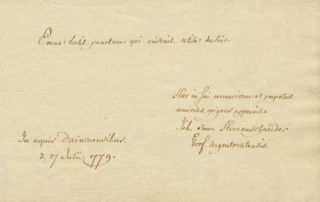 Omne tulit punctum qui miscuit utile dulci.
Hæc in sui memoriam et perpetuæ
amicitiæ pignus apposuit
Joh. Sam.
Prof. Argentoratensis
In aquis
d. 27 Julii 1779.